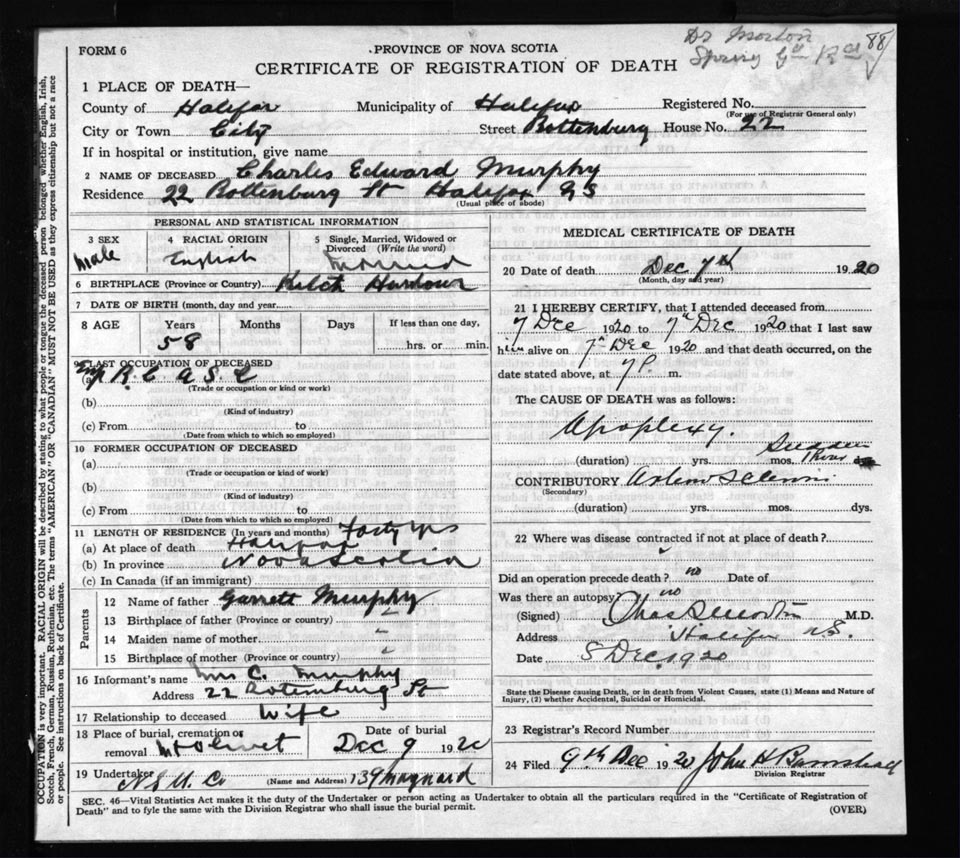 Dr Morton
Spring Gd Rd
88
FORM 6
PROVINCE OF NOVA SCOTIA
CERTIFICATE OF REGISTRATION OF DEATH
1 PLACE OF DEATH—
County of Halifax Municipality of Halifax Registered No.
(For use of Registrar General only)
City or Town City Street Rottenburg House No. 22
If in hospital or institution, give name
2 NAME OF DECEASED Charles Edward Murphy
Residence 22 Rottenburg St Halifax N S
(Usual place of abode)
PERSONAL AND STATISTICAL INFORMATION
3 SEX Male
4 RACIAL ORIGIN English
5 Single, Married, Widowed or Divorced (Write the word) Married
6 BIRTHPLACE (Province or Country) Ketch Harbour
7 DATE OF BIRTH (month, day and year)
8 AGE Years 58 Months Days If less than one day, hrs. or min.
9 LAST OCCUPATION OF DECEASED
R C A S C
(Trade or occupation or kind or work)
(b)
(Kind of industry)
(c) From to
(Date from which to which so employed)
10 FORMER OCCUPATION OF DECEASED
(a)
(Trade or occupation or kind of work)
(b)
(Kind of industry)
(c) From to
(Date from which to which so employed)
11 LENGTH OF RESIDENCE (In years and months) Forty yrs
(a) At place of death Halifax
(b) In province Nova Scotia
(c) In Canada (if an immigrant)
Parents
12 Name of father Garrett Murphy
13 Birthplace of father (Province or country)
14 Maiden name of mother
15 Birthplace of mother (Province or country)
16 Informant's name Mrs C. Murphy
Address 22 Rotemburg St
17 Relationship to deceased Wife
18 Place of burial, cremation or removal Mt Olivet Date of burial Dec 9 1920
19 Undertaker N S U. Co (Name and Address) 139 Maynard
MEDICAL CERTIFICATE OF DEATH
20 Date of death Dec 7th 1920
(Month, day and year)
21 I HEREBY CERTIFY, that I attended deceased from
7 Dec 1920 to 7th Dec 1920 that I last saw
him alive on 7th Dec 1920 and that death occurred, on the
date stated above, at 7 P. m.
The CAUSE OF DEATH was as follows:
Apoplexy.
(duration) yrs. mos. Sudden 1 hour
CONTRIBUTORY Arterio Sclerosis
(Secondary)
(duration) yrs. mos. dys.
22 Where was disease contracted if not at place of death?
Did an operation precede death? no Date of
Was there an autopsy no
(Signed) Chas S Morton M.D.
Address Halifax N.S.
Date 8 Dec. 1920
State the Disease causing Death, or in death from Violent Causes, state (1) Means and Nature of
Injury, (2) whether Accidental, Suicidal or Homicidal.
23 Registrar's Record Number
24 Filed 9th Dec 1920 John H Barnstead
Division Registrar
SEC. 46—Vital Statistics Act makes it the duty of the Undertaker or person acting as Undertaker to obtain all the particulars required in the "Certificate of Registration of
Death" and to fyle the same with the Division Registrar who shall issue the burial permit.
(OVER)
OCCUPATION is very important. RACIAL ORIGIN will be described by stating to what people or tongue the deceased person belonged whether English, Irish,
Scotch, French, German, Russian, Ruthenian, etc. The terms "AMERICAN" OR "CANADIAN" MUST NOT BE USED as they express citizenship but not a race
or people. See instructions on back of Certificate.